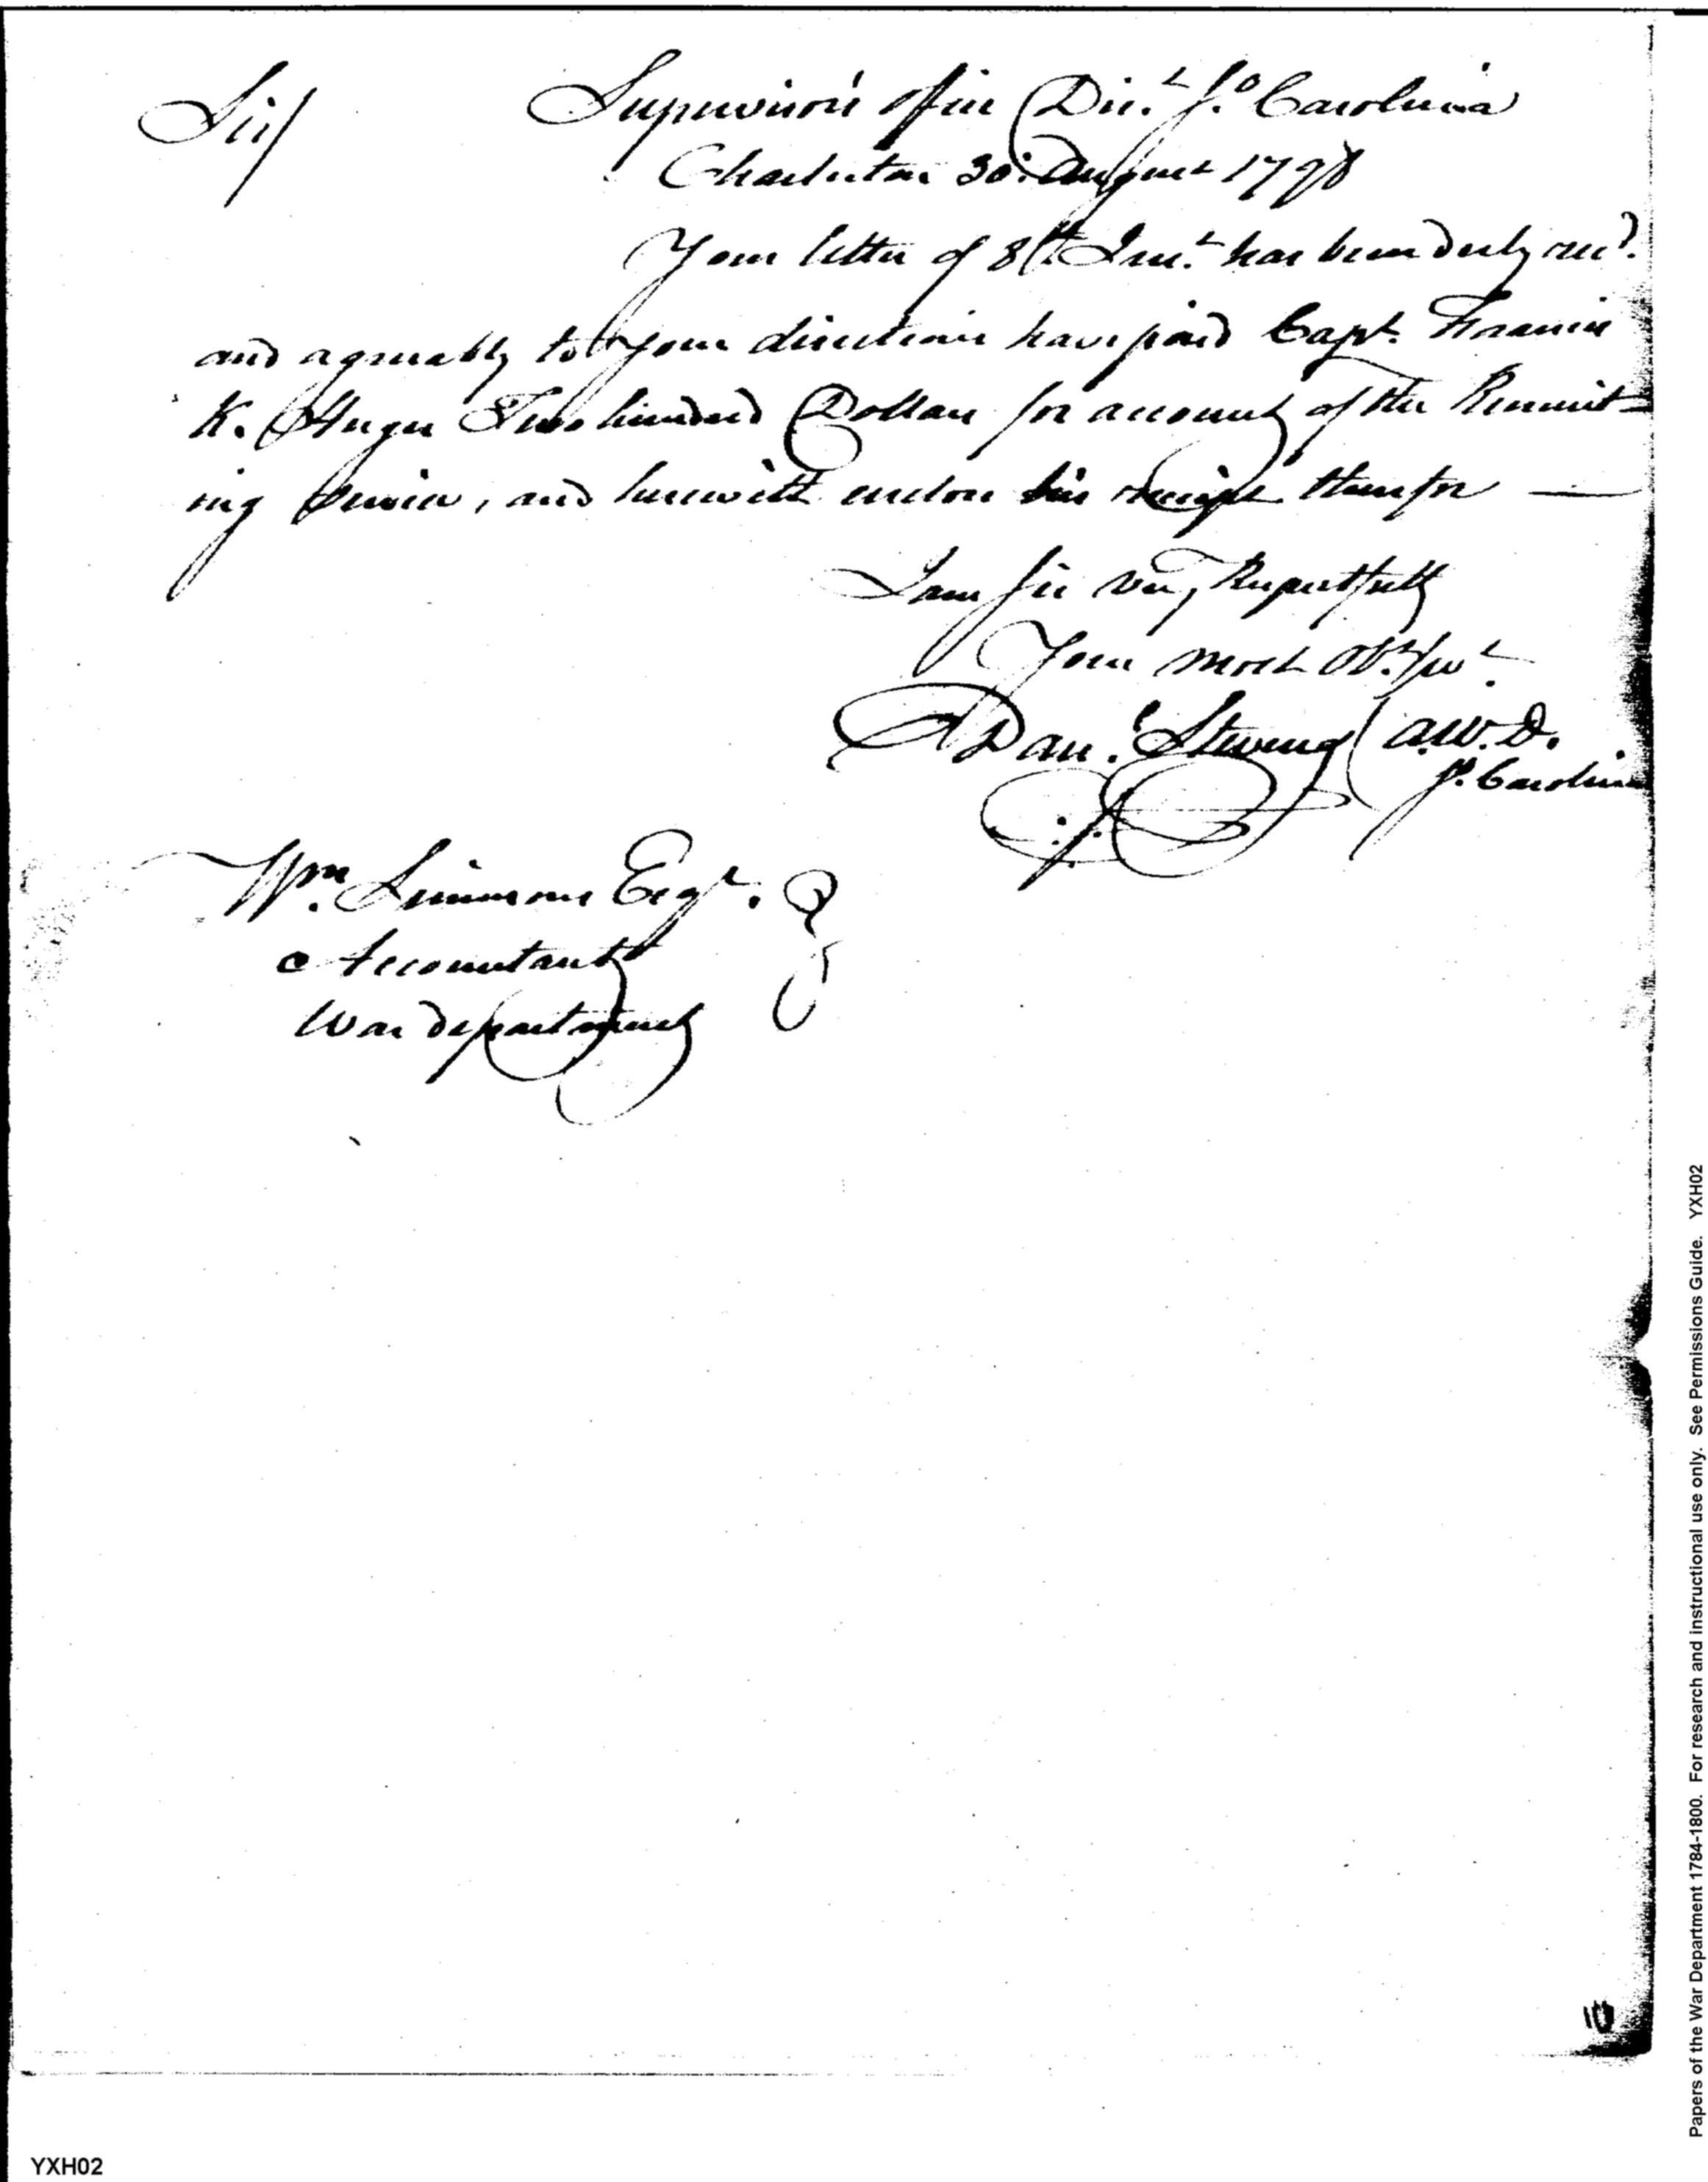 Sir/
Supervisor's Office Dis.t So. Carolina
Charleston 30. August 1798
Your letter of 8th Inst. has been duly recd.
and agreeably to your directions have paid Capt. Francis
K. Huger Two hundred Dollars for account of the Recruit=
ing Service, and herewith enclose his receipt therefor —
I am Sir very Respectfully
Your most Obt. Servt.
Danl. Stevens
So. Carolina
Wm. Simmons Esqr.
Accountant
War department
Papers of the War Department 1784-1800. For research and instructional use only. See Permissions Guide. YXH02
YXH02